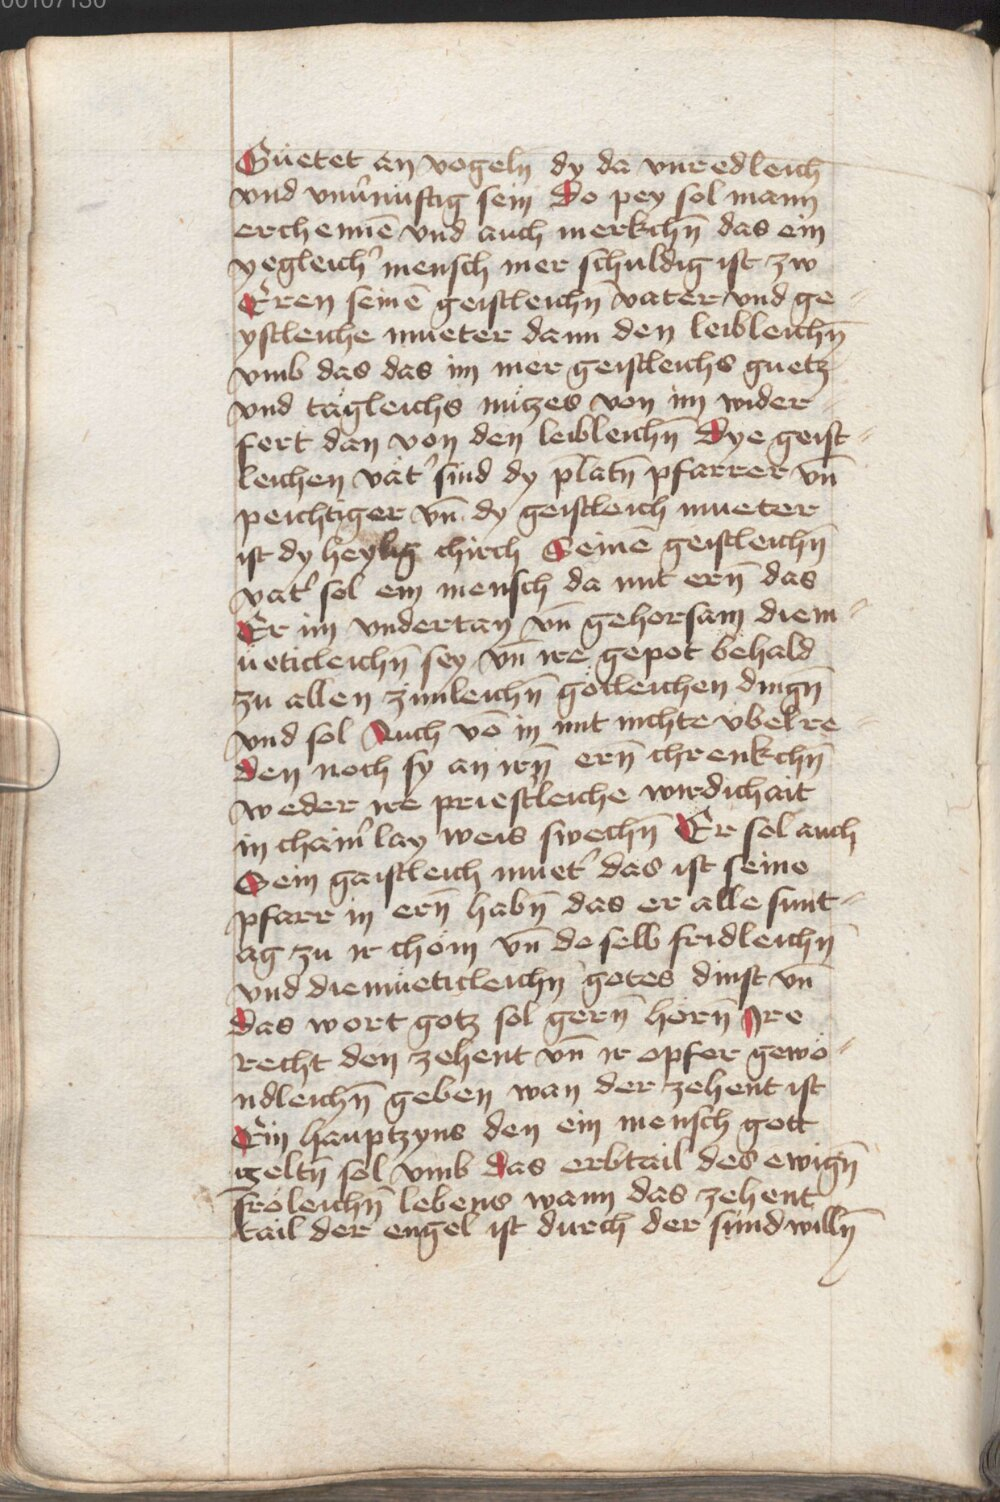 00107130
Guetet an vogeln̄ dy da vnredleich
vnd vnu̓nuftig sein Do pey sol mann
erchennē vnd auch merkchn̄ das ein
yegleich̓ mensch mer schuldig ist zw
Eren seinē geistleichn̄ vater vnd ge⸗
ystleiche mueter dann den leibleichn̄
vmb das das im mer geistleichs guetz
vnd tägleichs nützes von im wider⸗
fert dan von den leibleichn̄ Dye geist⸗
leichen vät̓ sind dy p̄latn̄ pfarrer vn̄
peichtiger vn̄ dy geistleich mueter
ist dy heylig chirch Seinē geistleichn̄
vät̓ sol ein mensch da mit ern̄ das
Er im vndertan vn̄ gehorsam diem⸗
ueticleichn̄ sey vn̄ ire gepot behald
zu allen zimleichn̄ götleichen dingn̄
vnd sol Auch vō in mit nichte vbel re⸗
den noch sy an irn̄ ern̄ chrenkchn̄
weder ire priestleiche wirdichait
in cham̓lay weis swechn̄ Er sol auch
Sein gaistleich muet̓ das ist seine
pfarr in ern̄ habn̄ das er alle sunt⸗
ag zu ir chöm vn̄ do selb fridleichn̄
vnd diemüeticleichn̄ gotes dinst vn̄
das wort gotz sol gern̄ hörn̄ Ire
recht den zehent vn̄ ir opfer gewö⸗
ndleichn̄ geben wan der zehent ist
Ein hauptzyns den ein mensch gott
geltn̄ sol vmb das erbtail des ewign̄
fröleichn̄ lebens wann das zehent
tail der engel ist durch der sünd willn̄